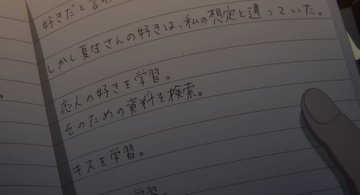 好きだと言わ
しかし夏生さんの好きは、私の想定と違っていた。
恋人の好きを学習。
そのための資料を検索。
キスを学習。
学習。